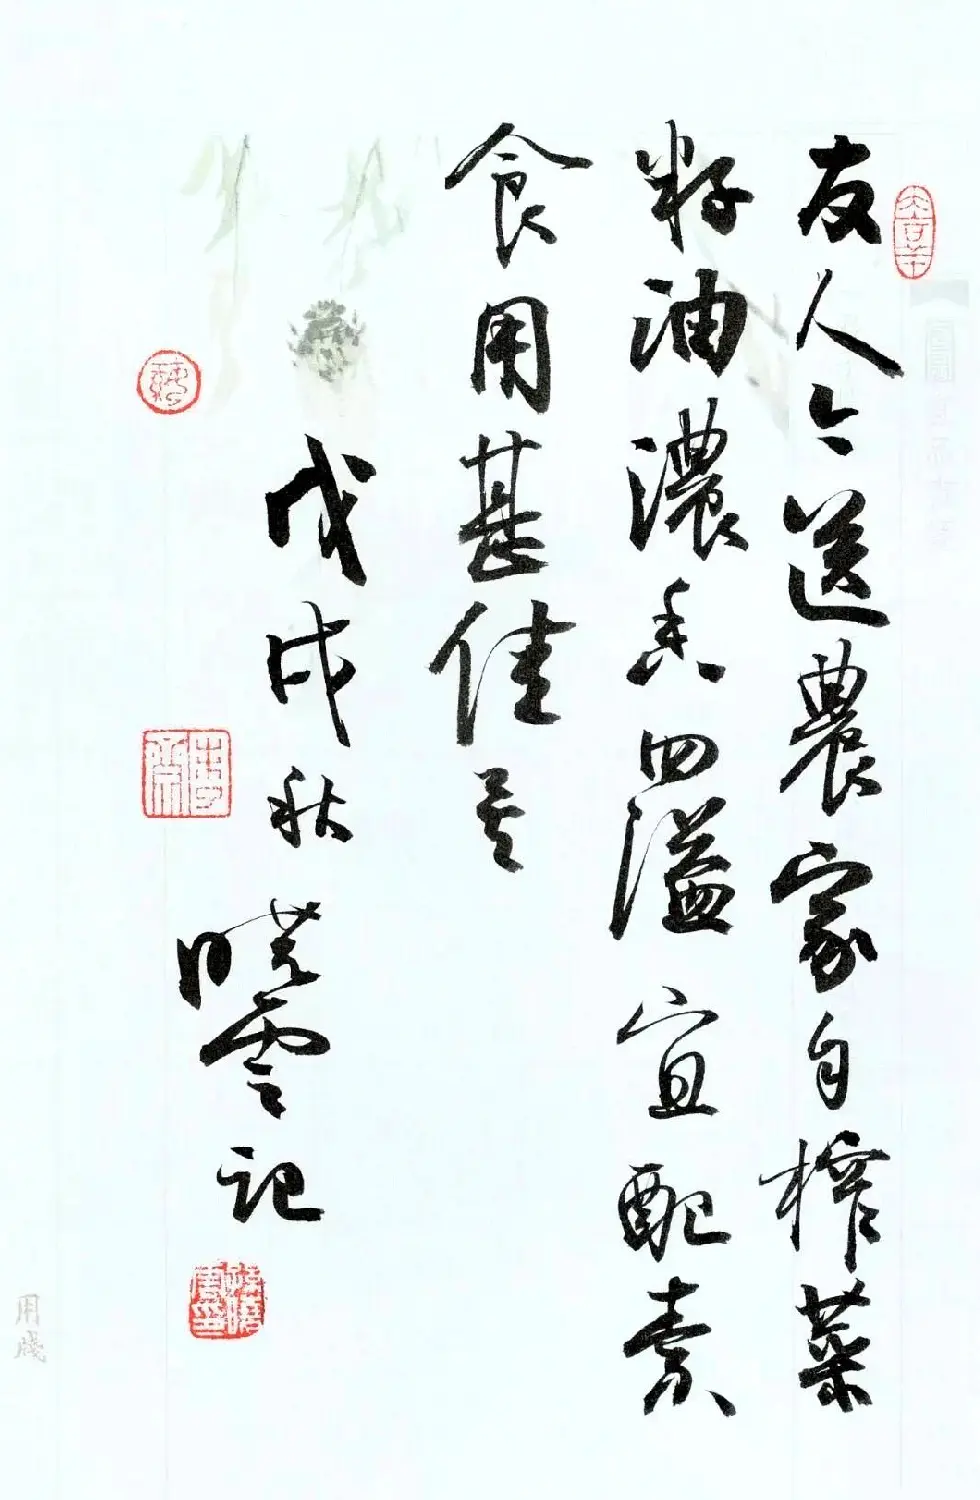 友人令送農家自榨菜
籽油濃香四溢宜配素
食用甚佳矣
戊戌秋曉雲記
用牋